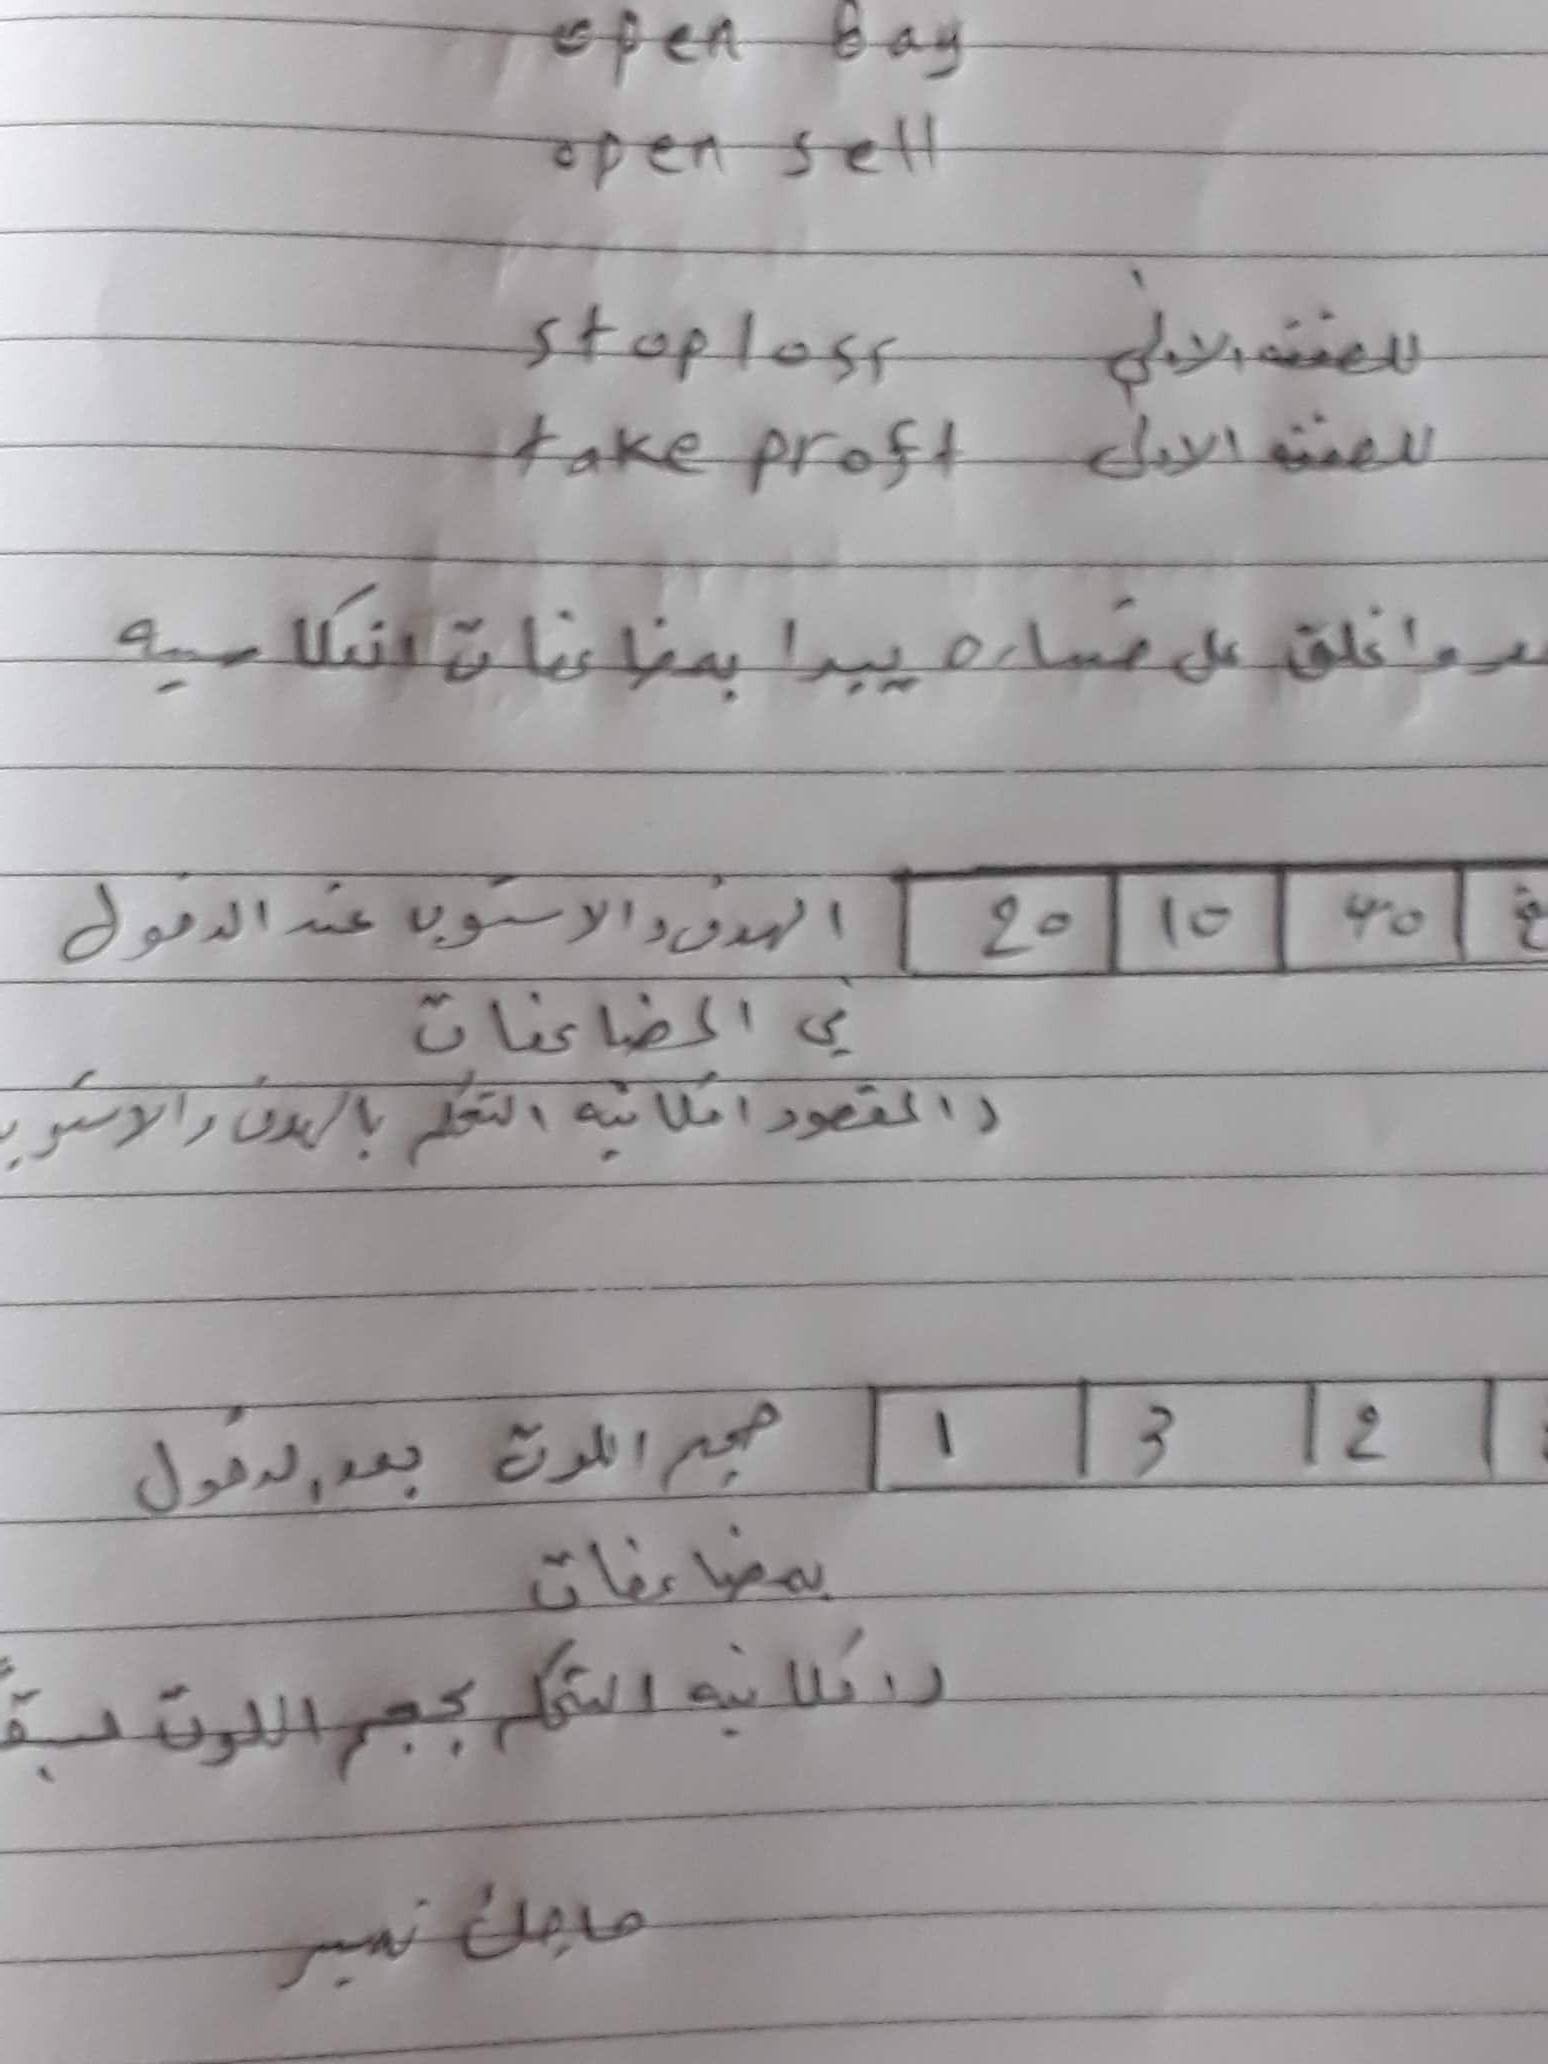 open bay
open sell
stoploss للصفقه الاولي
take proft للصفقه الاولي
اغلق على خساره يبدا بمضاعفات انعكاسيه
الهدف والاستوب عند الدخول 20 10 40
في المضاعفات
والمقصود امكانيه التحكم بالهدف والاستوب
حجم اللوت بعد الدخول 1 3 2
بمضاعفات
وامكانيه التحكم بحجم اللوت